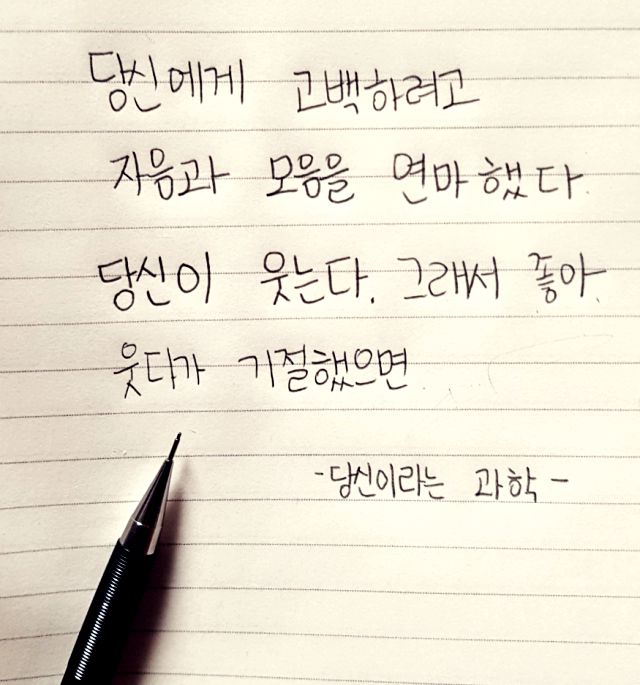 당신에게 고백하려고
자음과 모음을 연마했다
당신이 웃는다. 그래서 좋아.
웃다가 기절했으면
-당신이라는 과학-